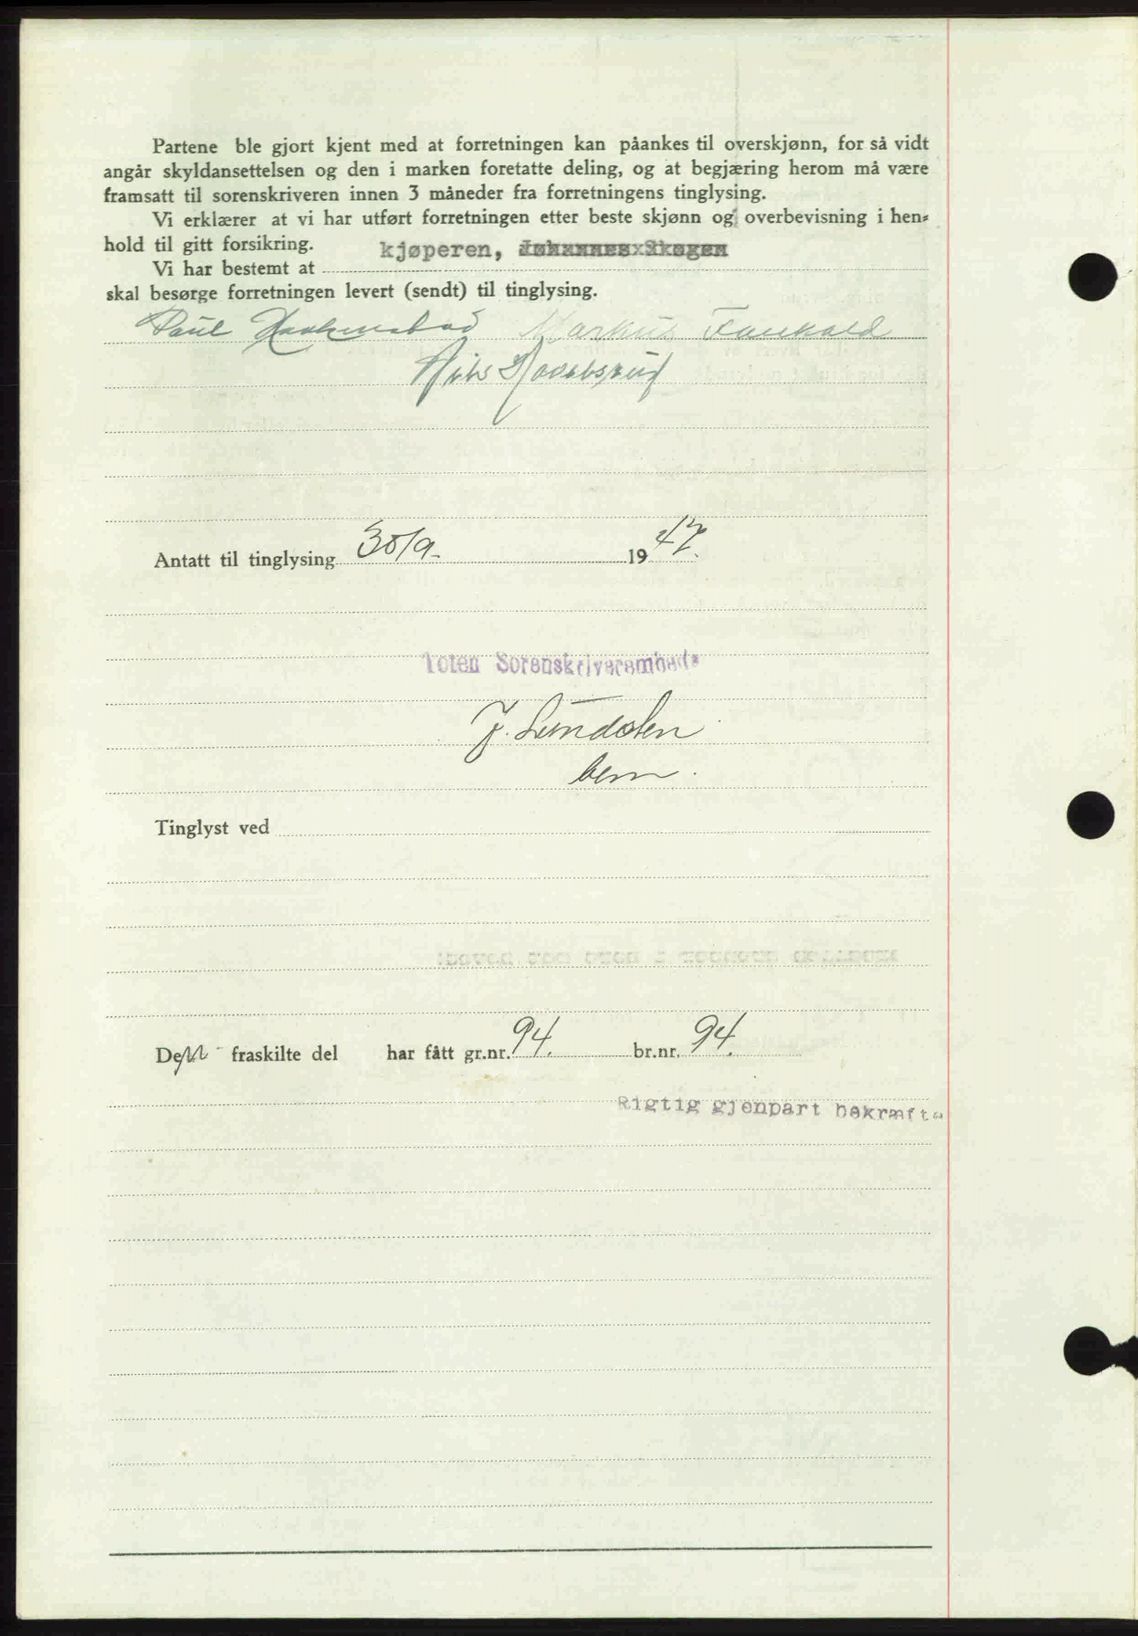 Partene ble gjort kjent med at forretningen kan påankes til overskjønn, for så vidt
angår skyldansettelsen og den i marken foretatte deling, og at begjæring herom må være
framsatt til sorenskriveren innen 3 måneder fra forretningens tinglysing.
Vi erklærer at vi har utført forretningen etter beste skjønn og overbevisning i hen-
hold til gitt forsikring.
Vi har bestemt at kjøperen, Johannes Skogen
skal besørge forretningen levert (sendt) til tinglysing.
Paul Markus
Nils
Antatt til tinglysing 30/9. 1947.
Toten Sorenskriverembede
J. Lundsten
bem.
Tinglyst ved
Den fraskilte del har fått gr.nr. 94. br.nr. 94.
Rigtig gjenpart bekræftes